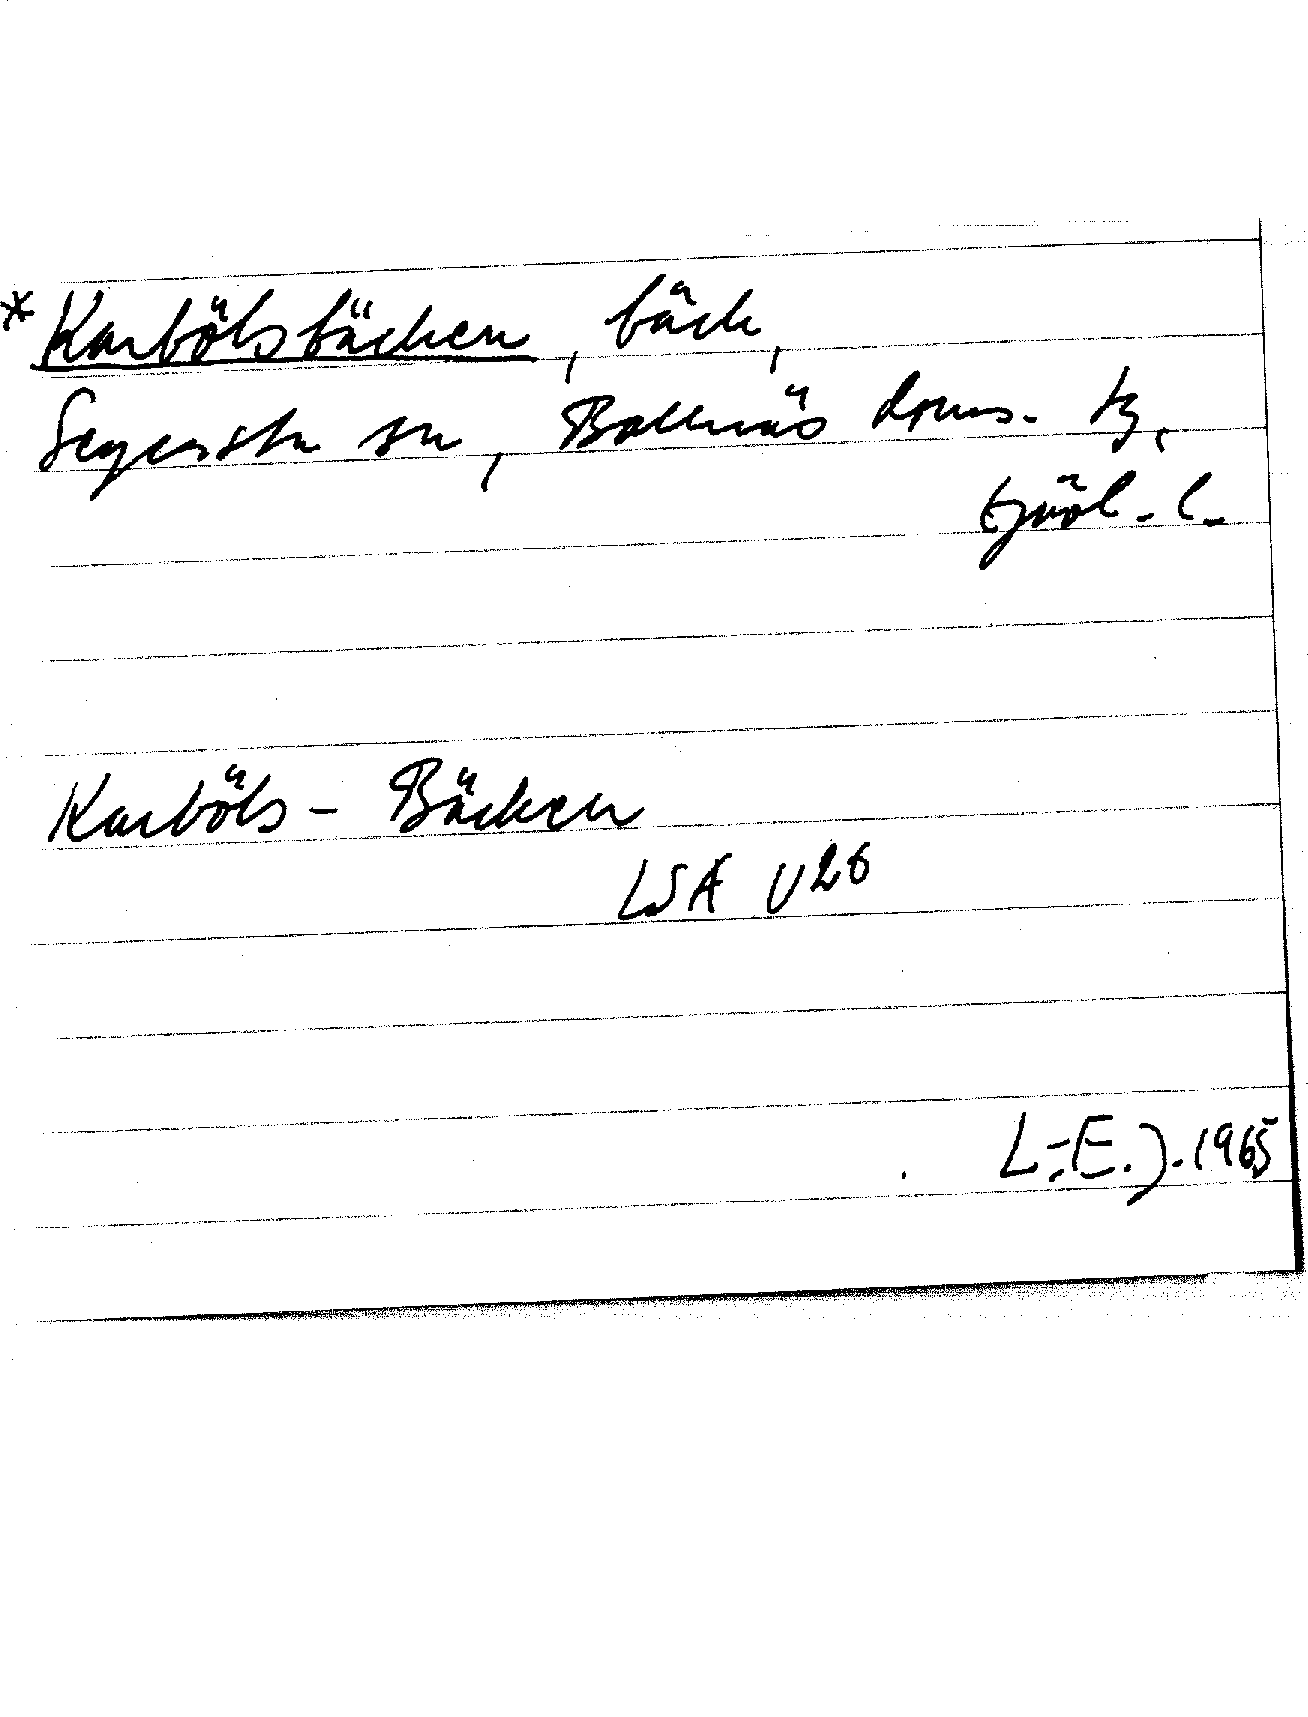 * Karbölsbäcken, bäck,
Segersta sn, Bollnäs doms. tg,
Gävl. l.
Karböls - Bäcken
LSA U26
L-E. J. 1965